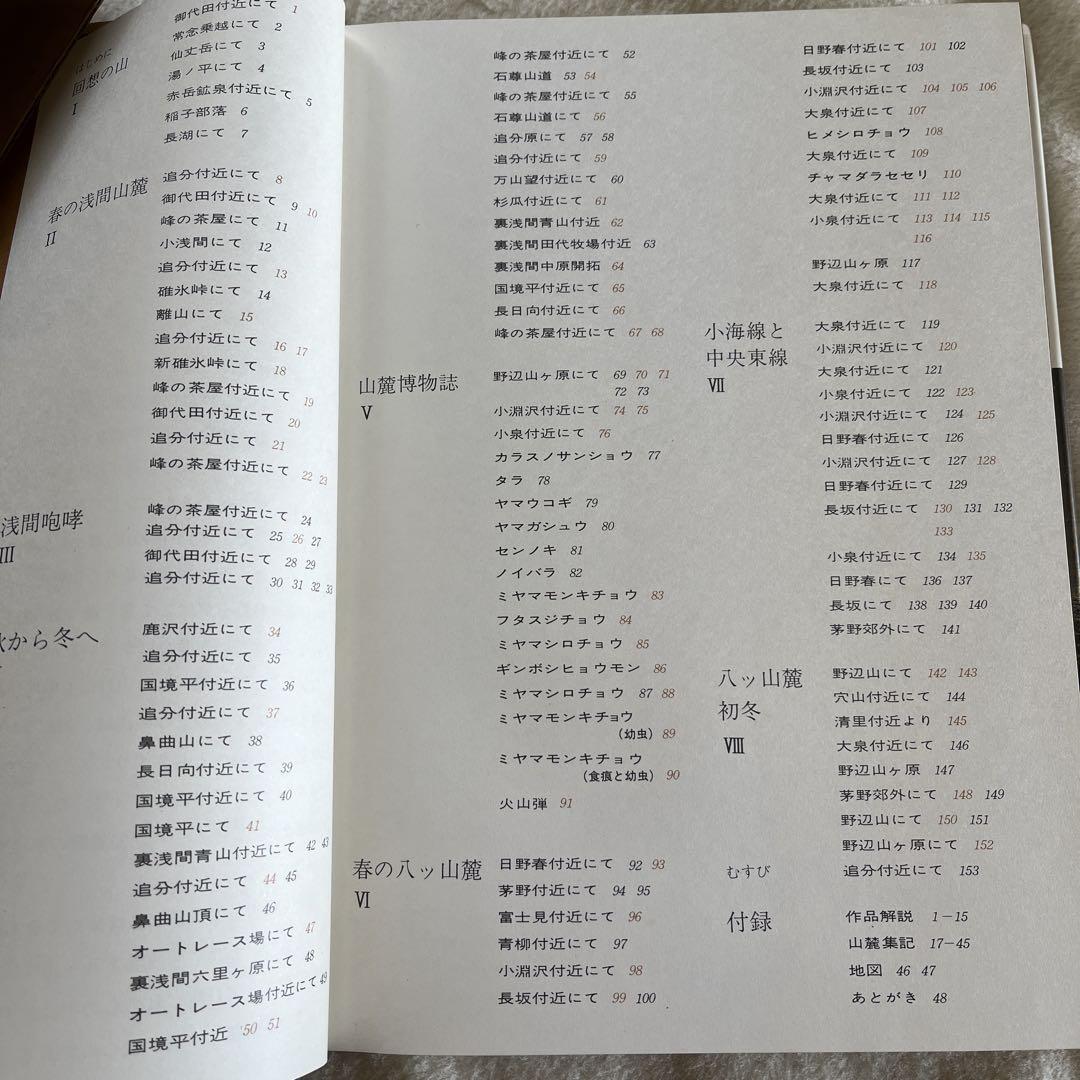 はじめに
回想の山
I
御代田付近にて 1
常念乗越にて 2
仙丈岳にて 3
湯ノ平にて 4
赤岳鉱泉付近にて 5
稲子部落 6
長湖にて 7
春の浅間山麓
II
追分付近にて 8
御代田付近にて 9 10
峰の茶屋にて 11
小浅間にて 12
追分付近にて 13
碓氷峠にて 14
離山にて 15
追分付近にて 16 17
新碓氷峠にて 18
峰の茶屋付近にて 19
御代田付近にて 20
追分付近にて 21
峰の茶屋付近にて 22 23
浅間咆哮
III
峰の茶屋付近にて 24
追分付近にて 25 26 27
御代田付近にて 28 29
追分付近にて 30 31 32 33
から冬へ
鹿沢付近にて 34
追分付近にて 35
国境平付近にて 36
追分付近にて 37
鼻曲山にて 38
長日向付近にて 39
国境平付近にて 40
国境平にて 41
裏浅間青山付近にて 42 43
追分付近にて 44 45
鼻曲山頂にて 46
オートレース場にて 47
裏浅間六里ヶ原にて 48
オートレース場付近にて 49
国境平付近 50 51
峰の茶屋付近にて 52
石尊山道 53 54
峰の茶屋付近にて 55
石尊山道にて 56
追分原にて 57 58
追分付近にて 59
万山望付近にて 60
杉瓜付近にて 61
裏浅間青山付近 62
裏浅間田代牧場付近 63
裏浅間中原開拓 64
国境平付近にて 65
長日向付近にて 66
峰の茶屋付近にて 67 68
山麓博物誌
V
野辺山ヶ原にて 69 70 71
72 73
小淵沢付近にて 74 75
小泉付近にて 76
カラスノサンショウ 77
タラ 78
ヤマウコギ 79
ヤマガシュウ 80
センノキ 81
ノイバラ 82
ミヤマモンキチョウ 83
フタスジチョウ 84
ミヤマシロチョウ 85
ギンボシヒョウモン 86
ミヤマシロチョウ 87 88
ミヤマモンキチョウ
(幼虫) 89
ミヤマモンキチョウ
(食痕と幼虫) 90
火山弾 91
春の八ッ山麓
VI
日野春付近にて 92 93
茅野付近にて 94 95
富士見付近にて 96
青柳付近にて 97
小淵沢付近にて 98
長坂付近にて 99 100
日野春付近にて 101 102
長坂付近にて 103
小淵沢付近にて 104 105 106
大泉付近にて 107
ヒメシロチョウ 108
大泉付近にて 109
チャマダラセセリ 110
大泉付近にて 111 112
小泉付近にて 113 114 115
116
野辺山ヶ原 117
大泉付近にて 118
小海線と
中央東線
VII
大泉付近にて 119
小淵沢付近にて 120
大泉付近にて 121
小泉付近にて 122 123
小淵沢付近にて 124 125
日野春付近にて 126
小淵沢付近にて 127 128
日野春付近にて 129
長坂付近にて 130 131 132
133
小泉付近にて 134 135
日野春にて 136 137
長坂にて 138 139 140
茅野郊外にて 141
八ッ山麓
初冬
VIII
野辺山にて 142 143
穴山付近にて 144
清里付近より 145
大泉付近にて 146
野辺山ヶ原 147
茅野郊外にて 148 149
野辺山にて 150 151
野辺山ヶ原にて 152
むすび
追分付近にて 153
付録
作品解説 1–15
山麓集記 17–45
地図 46 47
あとがき 48